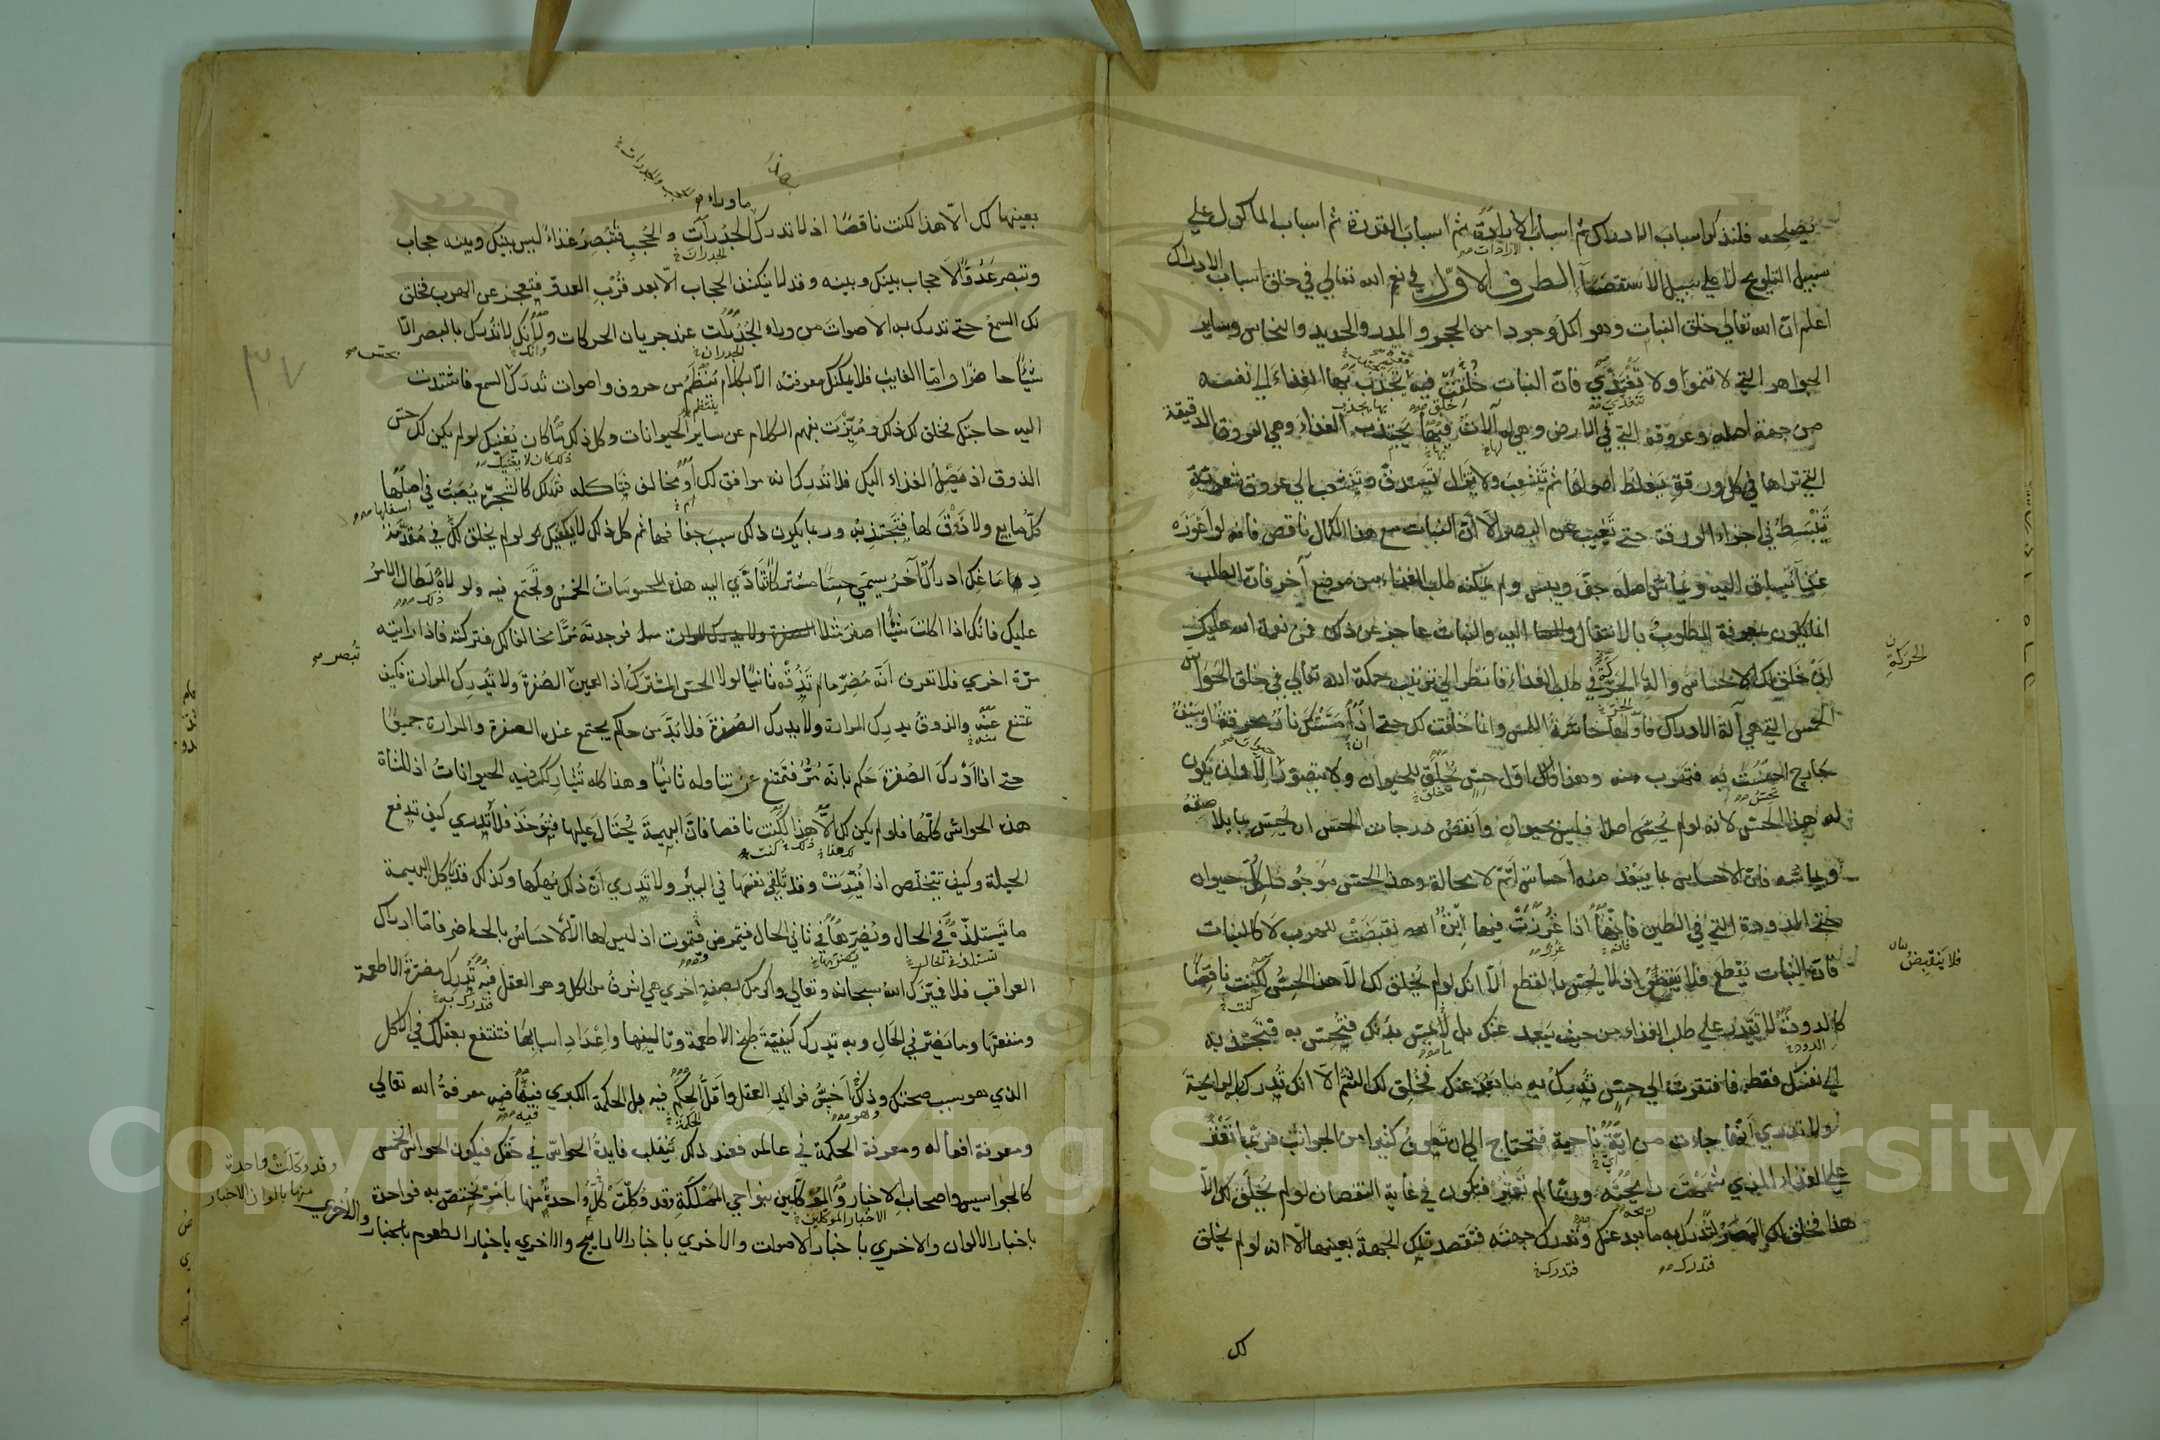 يصلحه فلنذكر اسباب الادراك ثم اسباب الارادة ثم اسباب القدرة ثم اسباب الماكول علي
الارادات
سبيل التلويح لا علي سبيل الاستقصآ الطرف الاول في نعم الله تعالي في خلق اسباب الادراك
اعلم ان الله تعالي خلق النبات وهو اكمل وجودا من الحجر والمدر والحديد والنحاس وساير
الجواهر التي لا تنموا ولا تغتذي فان النبات خلقت فيه قوة بها يجتذب الغذاء الي نفسه
تتغذي
من جهة اصله وعروقه التي في الارض وهي له آلات فيها يجتذب الغذاء وهي العروق الدقيقة
التي تراها في كل ورقة يغلظ اصولها ثم تتشعب ولا يزال تستدق وتتشعب الي عروق شعرية
تنبسط في اجزاء الورقة حتي تغيب عن البصر الا ان النبات مع هذا الكمال ناقص فانه لو اعوزه
غذآ يساق اليه ويماس اصله جف ويبس ولم يمكنه طلب الغذاء من موضع آخر فان الطلب
انما يكون بمعرفة المطلوب بالانتقال اليه والنبات عاجز عن ذلك فمن نعمة الله عليك
الحركة
ان خلق لك الاحساس وآلة الحركة في طلب الغذاء فانظر الي ترتيب حكمة الله تعالي في خلق الحواس
الخمس التي هي آلة الادراك فاولها حاسة اللمس وانما خلقت لك حتي اذا مستك نار محرقة او سيف
جارح احسست به فتهرب منه وهذا اول حس خلق للحيوان ولا يتصور الا وان يكون
تحس
يخلق
له هذا الحس لانه لو لم يحس اصلا فليس بحيوان وانقص درجات الحس ان يحس بما يلاصقه
ويماسه فان الاحساس بما يبعد منه احساس اتم لا محالة وهذا الحس موجود لكل حيوان
حتي الدودة التي في الطين فانها اذا غرزت فيها ابرة انقبضت للهرب لا كالنبات
فانه
غرز
فلا ينقبض
فان النبات يقطع فلا ينقبض اذ لا يحس بالقطع الا انك لو لم يخلق لك الا هذا الحس لكنت ناقصا
كنت
كالدودة لا تقدر علي طلب الغذاء من حيث يبعد عنك بل ما يمس بدنك فتحس به فتجذبه
الدود
الي نفسك فقط فافتقرت الي حس تدرك به ما بعد عنك فخلق لك الشم الا انك تدرك به الرايحة
ولا تدري انها جاءت من اي ناحية فتحتاج الي ان تطوف كثيرا من الجوانب فربما تعثر
علي الغذاء الذي شممت رايحته وربما لم تعثر فتكون في غاية النقصان لو لم يخلق لك الا
هذا فخلق لك البصر لتدرك به ما بعد عنك وتدرك جهته فتقصد تلك الجهة بعينها الا انه لو لم يخلق
فتدرك
فتدرك
لك
ماوراء
بعينها لك الا هذا لكنت ناقصا اذ لا تدرك الجدرات والحجب فتبصر غذاء ليس بينك وبينه حجاب
الجدران
وتبصر عدوا لا حجاب بينك وبينه وقد لا ينكشف الحجاب الا بعد قرب العدو فتعجز عن الهرب فخلق
لك السمع حتي تدرك به الاصوات من وراء الجدرات عند جريان الحركات ولانك لا تدرك بالبصر الا
الجدران
وانك
شيئا حاضرا واما الغايب فلا يمكنك معرفته الا بكلام ينتظم من حروف واصوات تدرك السمع فاشتدت
ينتظم
اليه حاجتك فخلق لك ذلك وميزت بفهم الكلام عن ساير الحيوانات وكل ذلك ما كان يغنيك لو لم يكن لك حس
ذلك كان لا يغنيك
الذوق اذ يصل الغذاء اليك فلا تدرك انه موافق لك او مخالف فتاكله فتهلك كالشجرة يصب في اصلها
اسفلها
كل مايع ولا ذوق لها فتجتذبه وربما يكون ذلك سبب جفافها ثم كل ذلك لا يكفيك لو لم يخلق لك في مقدمة
دماغك ادراك آخر يسمي حسا مشتركا تتادي اليه هذه المحسوسات الخمس وتجتمع فيه ولولاه لطال الامر
ذلك
عليك فانك اذا اكلت شيئا اصفر مثلا فوجدته مرا مخالفا لك فتركته فاذا رايته
تبصر
مرة اخري فلا تعرف انه مضر ما لم تذقه ثانيا لولا الحس المشترك اذ العين تبصر الصفرة ولا تدرك المرارة فكيف
تمتنع عنه والذوق يدرك المرارة ولا يدرك الصفرة فلا بد من حاكم يجتمع عنده الصفرة والمرارة جميعا
منه
حتي اذا ادرك الصفرة حكم بانه مر فتمتنع عن تناوله ثانيا وهذا كله تشاركك فيه الحيوانات اذ للشاة
هذه الحواس كلها فلو لم يكن لك الا هذا لكنت ناقصا فان البهيمة يحتال عليها فتوخذ فلا تدري كيف تدفع
الحيلة وكيف تتخلص اذا قيدت وقد تلقي نفسها في البير ولا تدري ان ذلك يهلكها وكذلك قد تاكل البهيمة
ما تستلذه في الحال ويضرها في ثاني الحال فتمرض فتموت اذ ليس لها الا الاحساس بالحاضر فاما ادراك
العواقب فلا فميزك الله سبحانه وتعالي واكرمك بصفة اخري هي اشرف من الكل وهو العقل فبه تدرك مضرة الاطعمة
فتدرك به
ومنفعتها وما يضر في الحال وبه تدرك كيفية طبخ الاطعمة وتاليفها واعداد اسبابها فتنتفع بعقلك في الاكل
الذي هو سبب صحتك وذلك اخس فوايد العقل واقل الحكم فيه بل الحكمة الكبري فيه معرفة الله تعالي
وهو
الحكمة
فيه
ومعرفة افعاله ومعرفة الحكمة في عالمه فعند ذلك تنقلب فايدة الحواس في حقك فيكون الحواس الخمس
كالجواسيس واصحاب الاخبار والموكلين بنواحي المملكة وقد وكلت كل واحدة منها بامر يختص به فواحدة
الاخبار الموكلين
وقد وكلت واحدة
منها بالوان الاخبار
باخبار الالوان والاخري باخبار الاصوات والاخري باخبار الاراييح والاخري باخبار الطعوم والاخري باخبار
٣٧
Copyright © King Saud University
1957